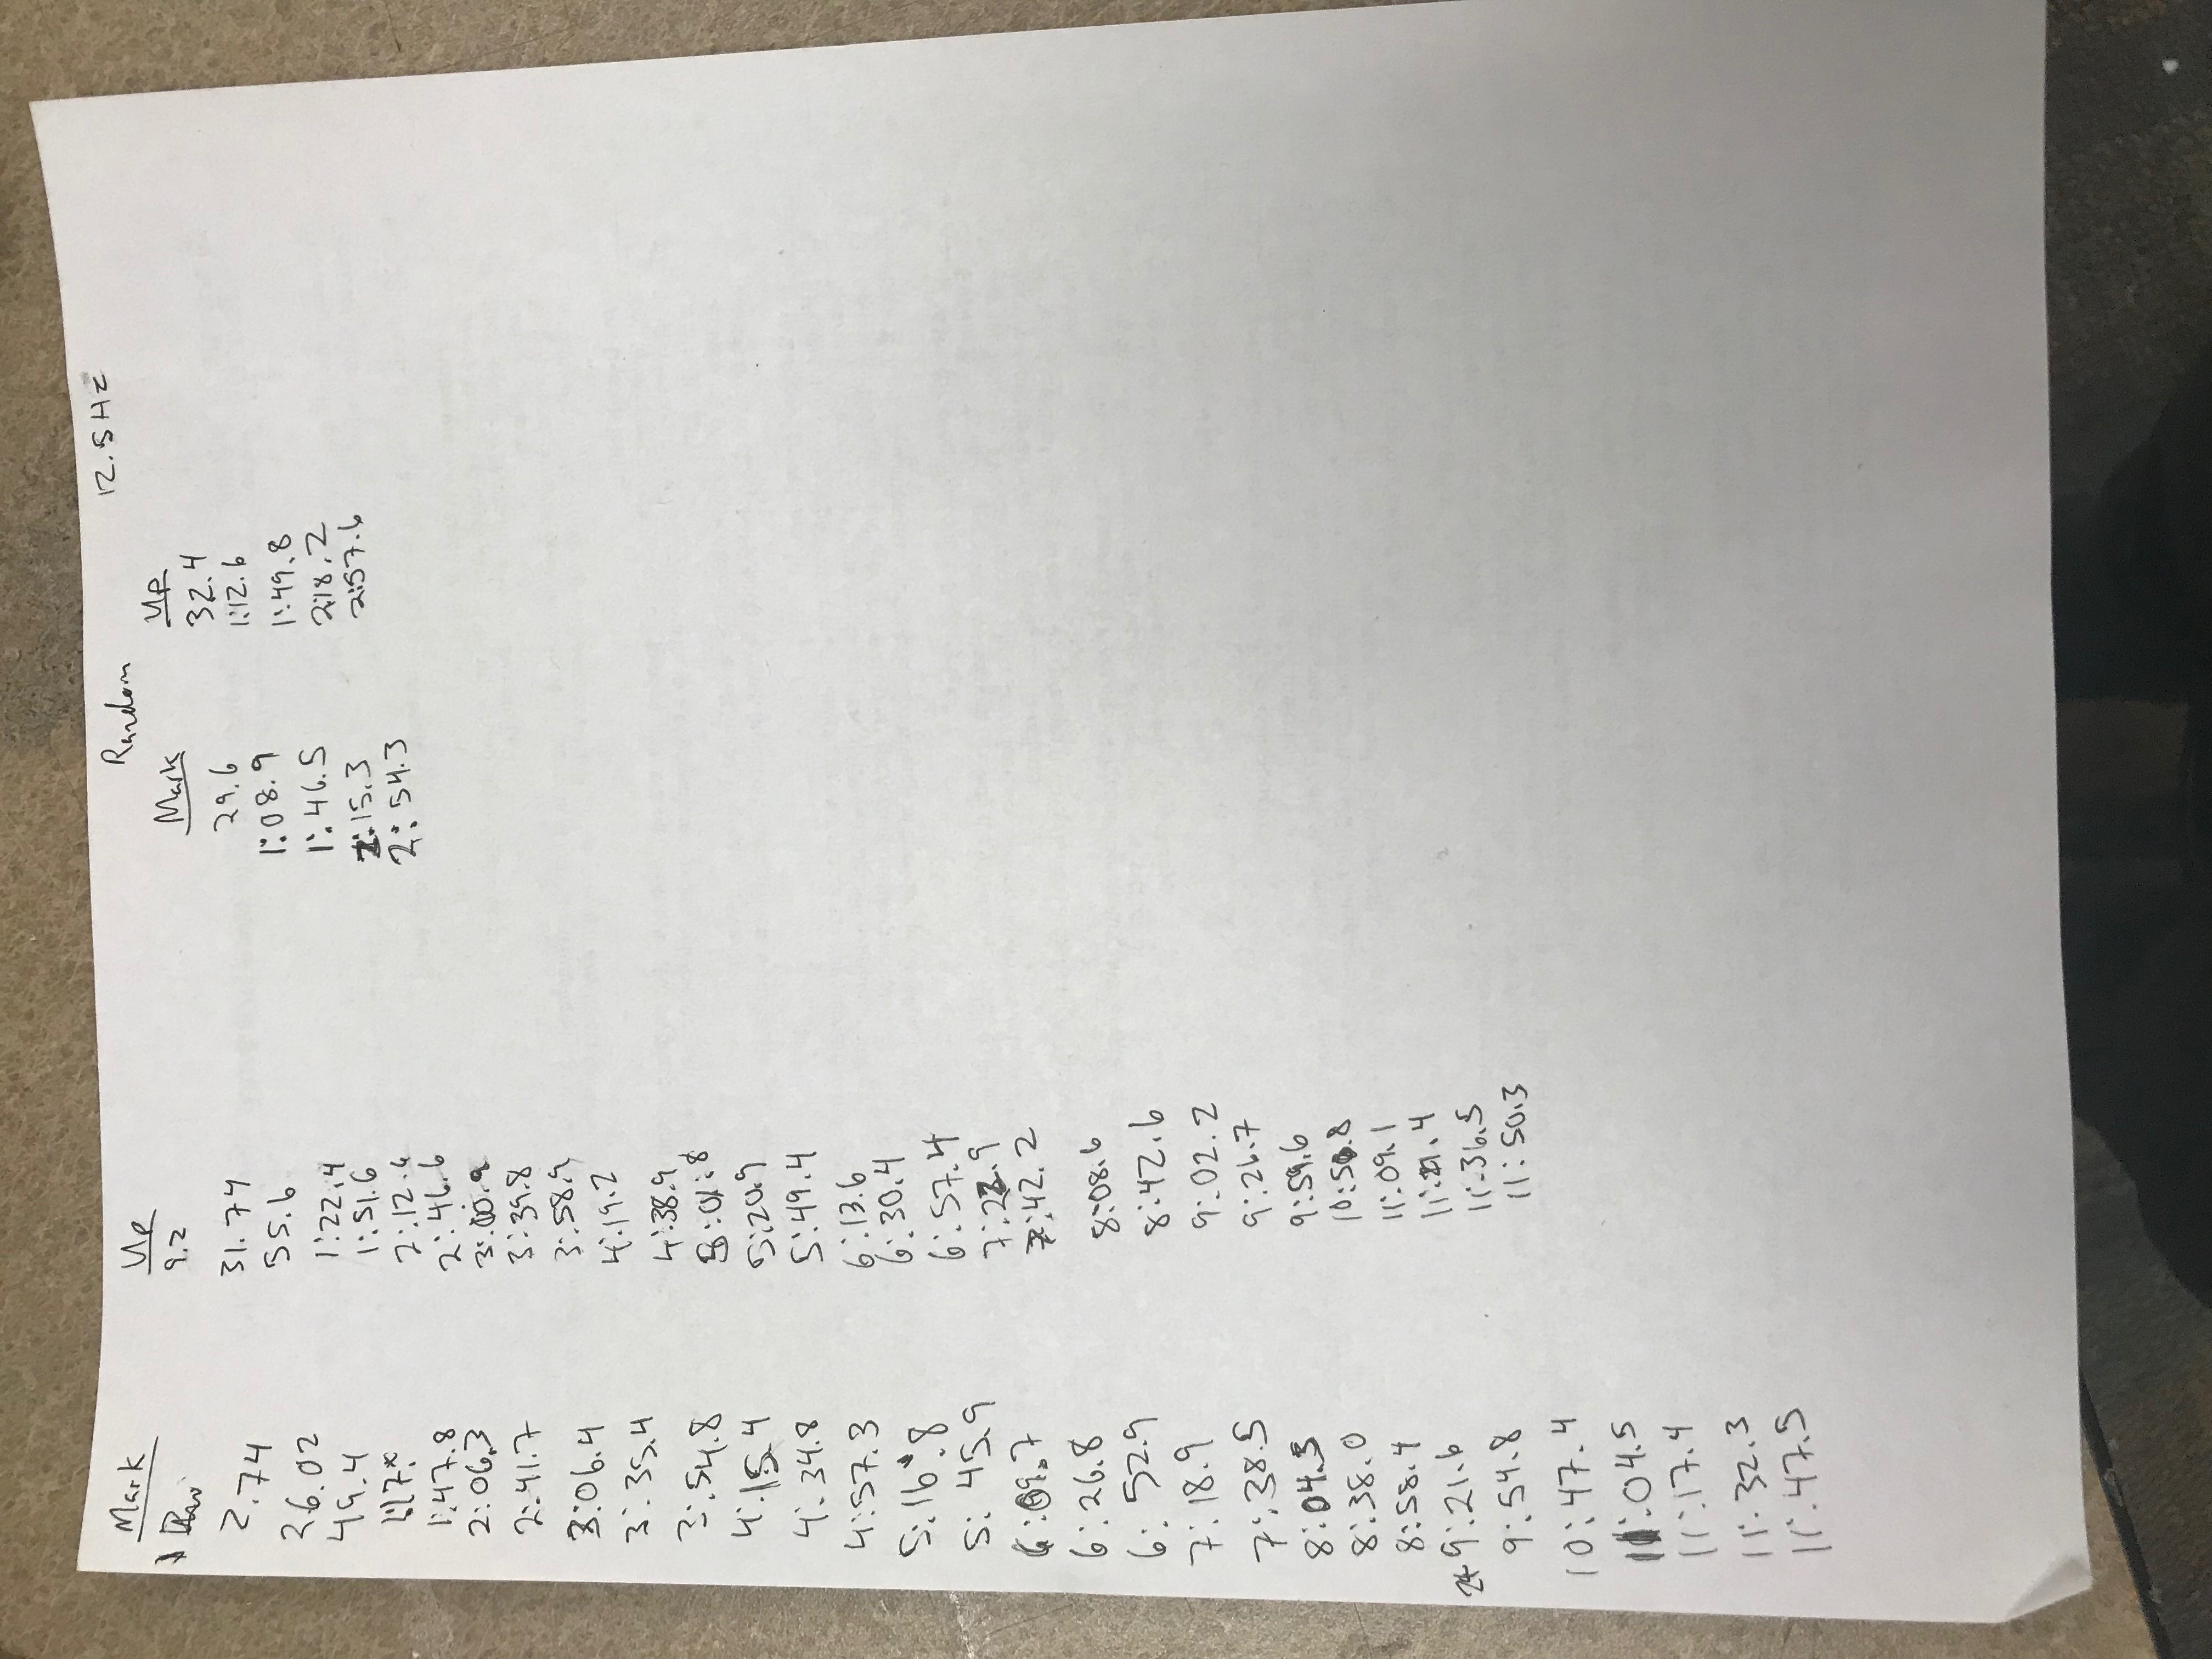 Mark
2.74
26.02
49.4
1:17.*
1:47.8
2:06.3
2:41.7
3:06.4
3:35.4
3:54.8
4:15.4
4:34.8
4:57.3
5:16.8
5:45.9
6:09.7
6:26.8
6:52.9
7:18.9
7:38.5
8:04.5
8:38.0
8:58.4
24 9:21.6
9:54.8
10:47.4
11:04.5
11:17.4
11:32.3
11:47.5
Up
9.2
31.74
55.6
1:22.4
1:51.6
2:12.6
2:46.6
3:10.9
3:39.8
3:58.9
4:19.2
4:38.9
5:01:8
5:20.9
5:49.4
6:13.6
6:30.4
6:57.4
7:22.9
7:42.2
8:08.6
8:42.6
9:02.2
9:26.7
9:59.6
10:50.8
11:09.1
11:21.4
11:36.5
11:50.3
Random 12.5 Hz
Mark
29.6
1:08.9
1:46.5
2:15.3
2:54.3
Up
32.4
1:12.6
1:49.8
2:18.2
2:57.6